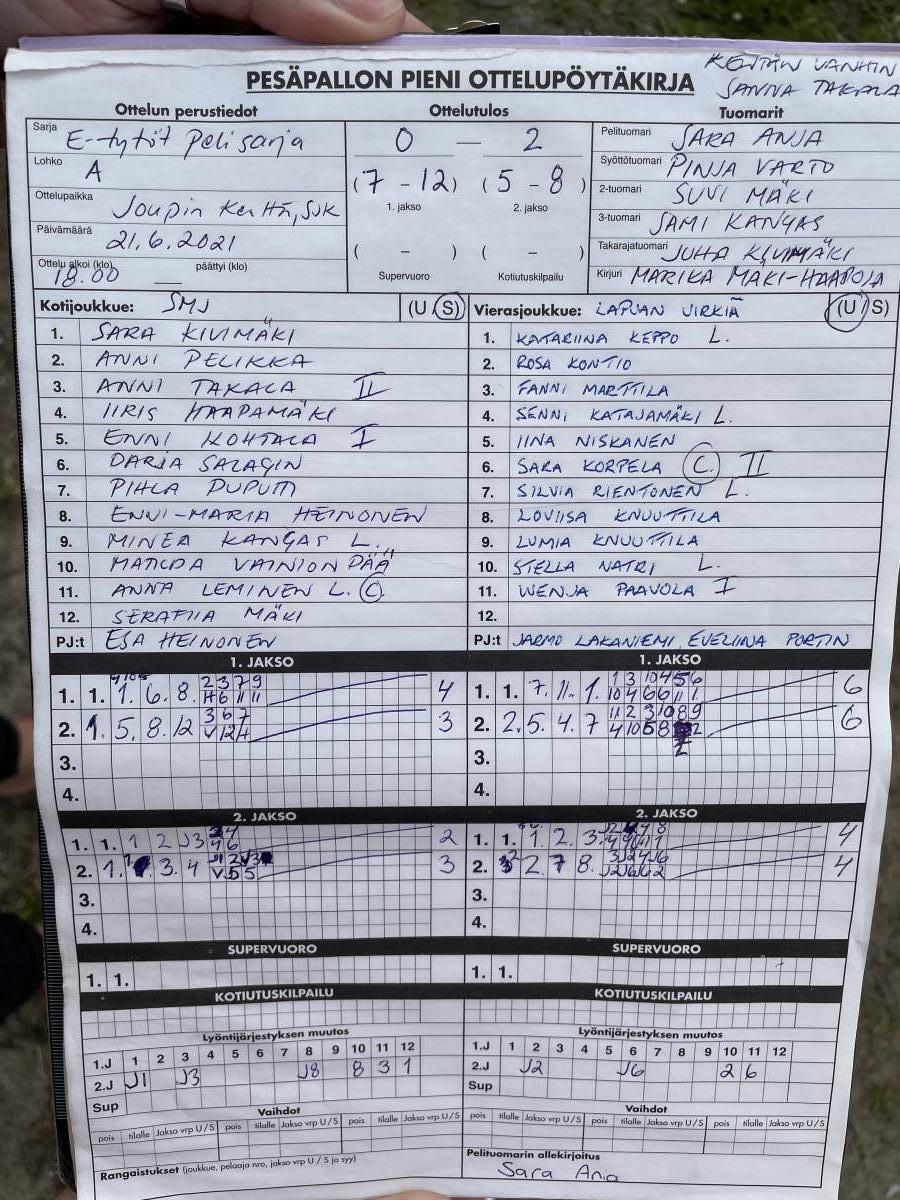 KENTÄN VANHIN
SANNA TAKALA
PESÄPALLON PIENI OTTELUPÖYTÄKIRJA
Ottelun perustiedot
Ottelutulos
Tuomarit
Sarja E-tytöt Pelisarja
Lohko A
Ottelupaikka Joupin kenttä, SJK
Päivämäärä 21.6.2021
Ottelu alkoi (klo) 18.00 päättyi (klo)
0 — 2
(7 - 12) (5 - 8)
1. jakso 2. jakso
( - ) ( - )
Supervuoro Kotiutuskilpailu
Pelituomari SARA ANJA
Syöttötuomari PINJA VARTO
2-tuomari SUVI MÄKI
3-tuomari SAMI KANGAS
Takarajatuomari JUHA KIVIMÄKI
Kirjuri MARIKA MÄKI-HAAPOJA
Kotijoukkue: SMJ (U/S)
1. SARA KIVIMÄKI
2. ANNI PELIKKA
3. ANNI TAKALA II
4. IIRIS HAAPAMÄKI
5. ENNI KOHTALA I
6. DARJA SALAGIN
7. PIHLA PUPUTTI
8. ENNI-MARIA HEINONEN
9. MINEA KANGAS L.
10. MATILDA VAINIONPÄÄ
11. ANNA LEMINEN L. C.
12. SERAFIIA MÄKI
PJ:t ESA HEINONEN
Vierasjoukkue: LAPUAN VIRKIÄ (U/S)
1. KATARIINA KEPPO L.
2. ROSA KONTIO
3. FANNI MARTTILA
4. SENNI KATAJAMÄKI L.
5. IINA NISKANEN
6. SARA KORPELA C. II
7. SILVIA RIENTONEN L.
8. LOVIISA KNUUTTILA
9. LUMIA KNUUTTILA
10. STELLA NATRI L.
11. WENJA PAAVOLA I
12.
PJ:t JARMO LAKANIEMI, EVELIINA PORTIN
1. JAKSO
1. 1. 1. 6. 8. 4
2. 1. 5. 8. 12 3
3.
4.
1. JAKSO
1. 1. 7. 11. 1. 6
2. 2. 5. 4. 7 6
3.
4.
2. JAKSO
1. 1. 1 2 J3 2
2. 1. 3. 4 3
3.
4.
2. JAKSO
1. 1. 1. 2. 3. 4
2. 2. 7 8. 4
3.
4.
SUPERVUORO
1. 1.
SUPERVUORO
1. 1.
KOTIUTUSKILPAILU
KOTIUTUSKILPAILU
Lyöntijärjestyksen muutos
1.J 1 2 3 4 5 6 7 8 9 10 11 12
2.J J1 J3 J8 8 3 1
Sup
Lyöntijärjestyksen muutos
1.J 1 2 3 4 5 6 7 8 9 10 11 12
2.J J2 J6 2 6
Sup
Vaihdot
pois tilalle Jakso vrp U/S pois tilalle Jakso vrp U/S pois tilalle Jakso vrp U/S
Vaihdot
pois tilalle Jakso vrp U/S pois tilalle Jakso vrp U/S pois tilalle Jakso vrp U/S
Rangaistukset (joukkue, pelaaja nro, jakso vrp U / S ja syy)
Pelituomarin allekirjoitus
Sara Anja